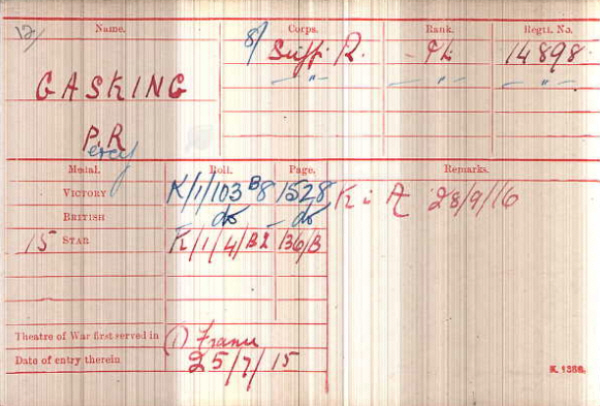 12/ Name. Corps. Rank. Regtl. No.
8/ Suff. R. Pte 14898.
— " — — " — — " —
GASKING
P. R
Percy
Medal. Roll. Page. Remarks.
VICTORY K/1/103 B8 1528 K i A 28/9/16
BRITISH — do — do
15 STAR K/1/4/B2 136/B
Theatre of War first served in (1) France
Date of entry therein 25/7/15
K. 1380.